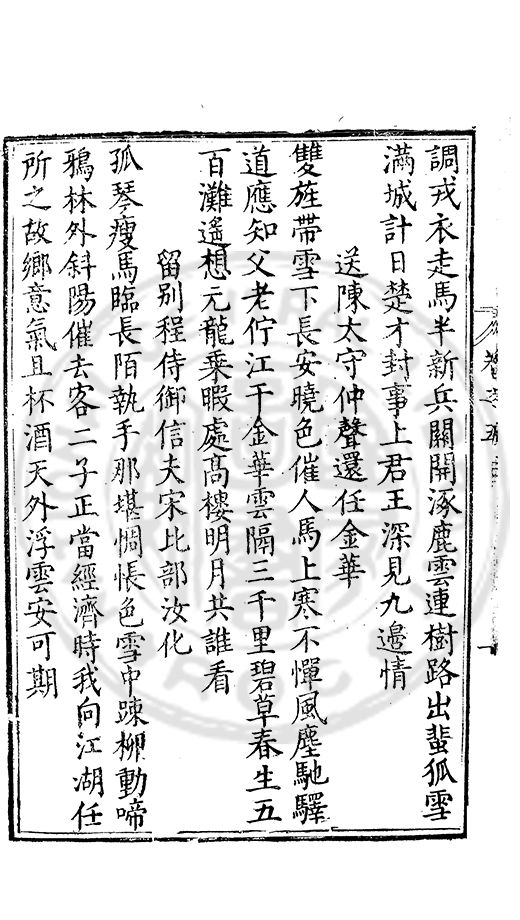 調戎衣走馬半新兵關開涿鹿雲連樹路出蜚狐雪
滿城計日楚才封事上君王深見九邊情
送陳太守仲聲還任金華
雙旌帶雪下長安曉色催人馬上寒不憚風塵馳驛
道應知父老佇江干金華雲隔三千里碧草春生五
百灘遙想元龍乘暇處高樓明月共誰看
留别程侍御信夫宋比部汝化
孤琴瘦馬臨長陌執手那堪惆悵色雪中踈柳動啼
鴉林外斜陽催去客二子正當經濟時我向江湖任
所之故鄉意氣且杯酒天外浮雲安可期